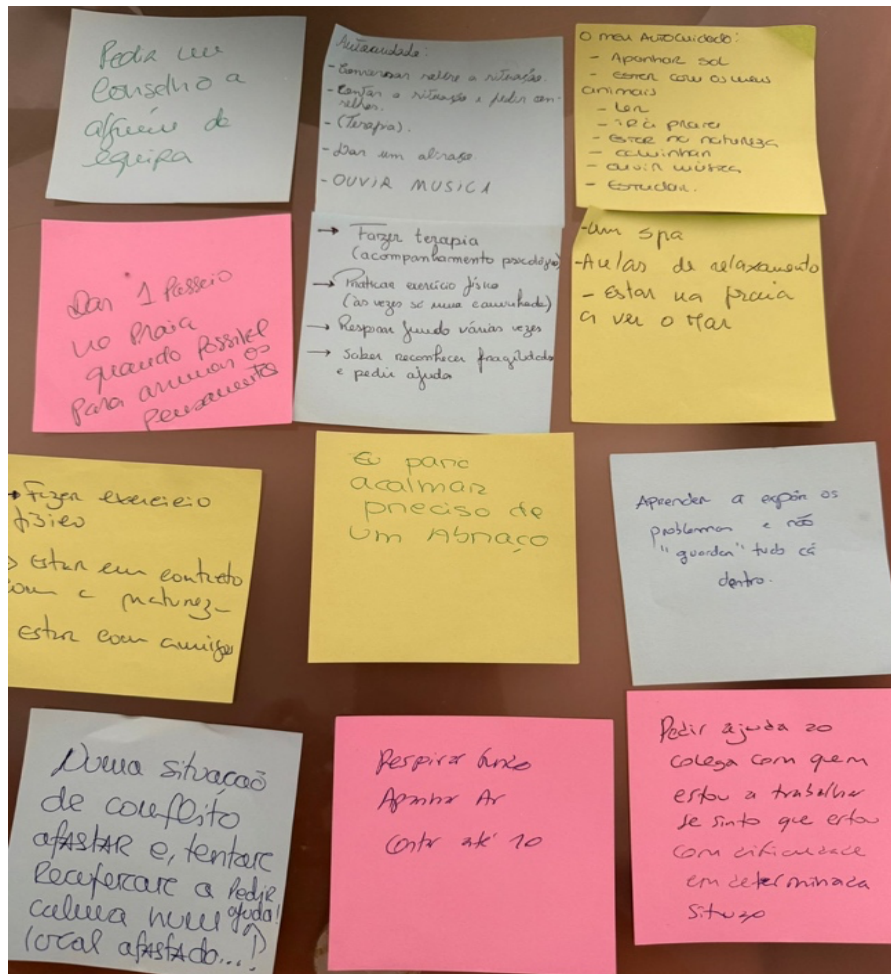 Pedir um
conselho a
alguém de
equipa
Autocuidado:
- Conversar sobre a situação.
- Contar a situação e pedir con-
selhos.
- (Terapia).
- Dar um abraço.
- OUVIR MUSICA
O meu Autocuidado:
- Apanhar sol
- Estar com os meus
animais
- Ler
- ir à praia
- Estar na natureza
- caminhar
- ouvir música
- Estudar.
Dar 1 Passeio
na Praia
quando Possível
Para arrumar os
pensamentos
→ Fazer terapia
(acompanhamento psicológico)
→ Praticar exercício físico
(às vezes só uma caminhada)
→ Respirar fundo várias vezes
→ Saber reconhecer fragilidade
e pedir ajuda
- Um spa
- Aulas de relaxamento
- Estar na praia
a ver o Mar
• Fazer exercicio
fisico
> Estar em contacto
com a natureza
Estar com amigos
Eu para
acalmar
preciso de
um Abraço
Aprender a expôr os
problemas e não
"guardar" tudo cá
dentro.
Numa situação
de conflito
afASTAR e, tentar
Recuperar a
calma num
local afASTADO...!
Pedir
ajuda!
Respirar fundo
Apanhar Ar
Contar até 10
Pedir ajuda ao
colega com quem
estou a trabalhar
se sinto que estou
com dificuldade
em determinada
situação